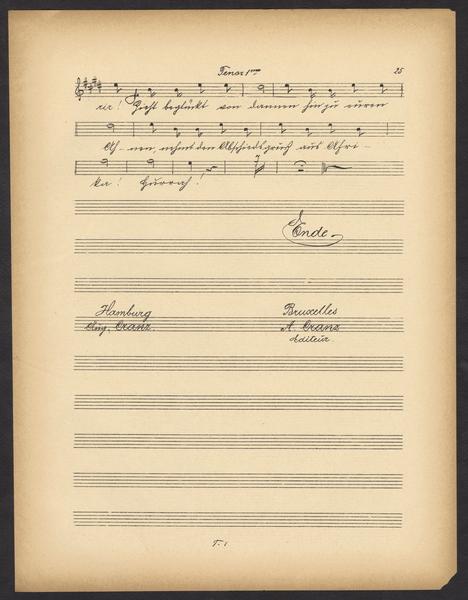 Tenor 1mo
25
rir! Zieht beglückt von dannen hin zu euren
Ah-nen, nehmt den Abschiedsgruß aus Afri-
ka! Hurrah!
Ende
Hamburg
Aug. Cranz.
Bruxelles
A. Cranz
éditeur.
T. 1